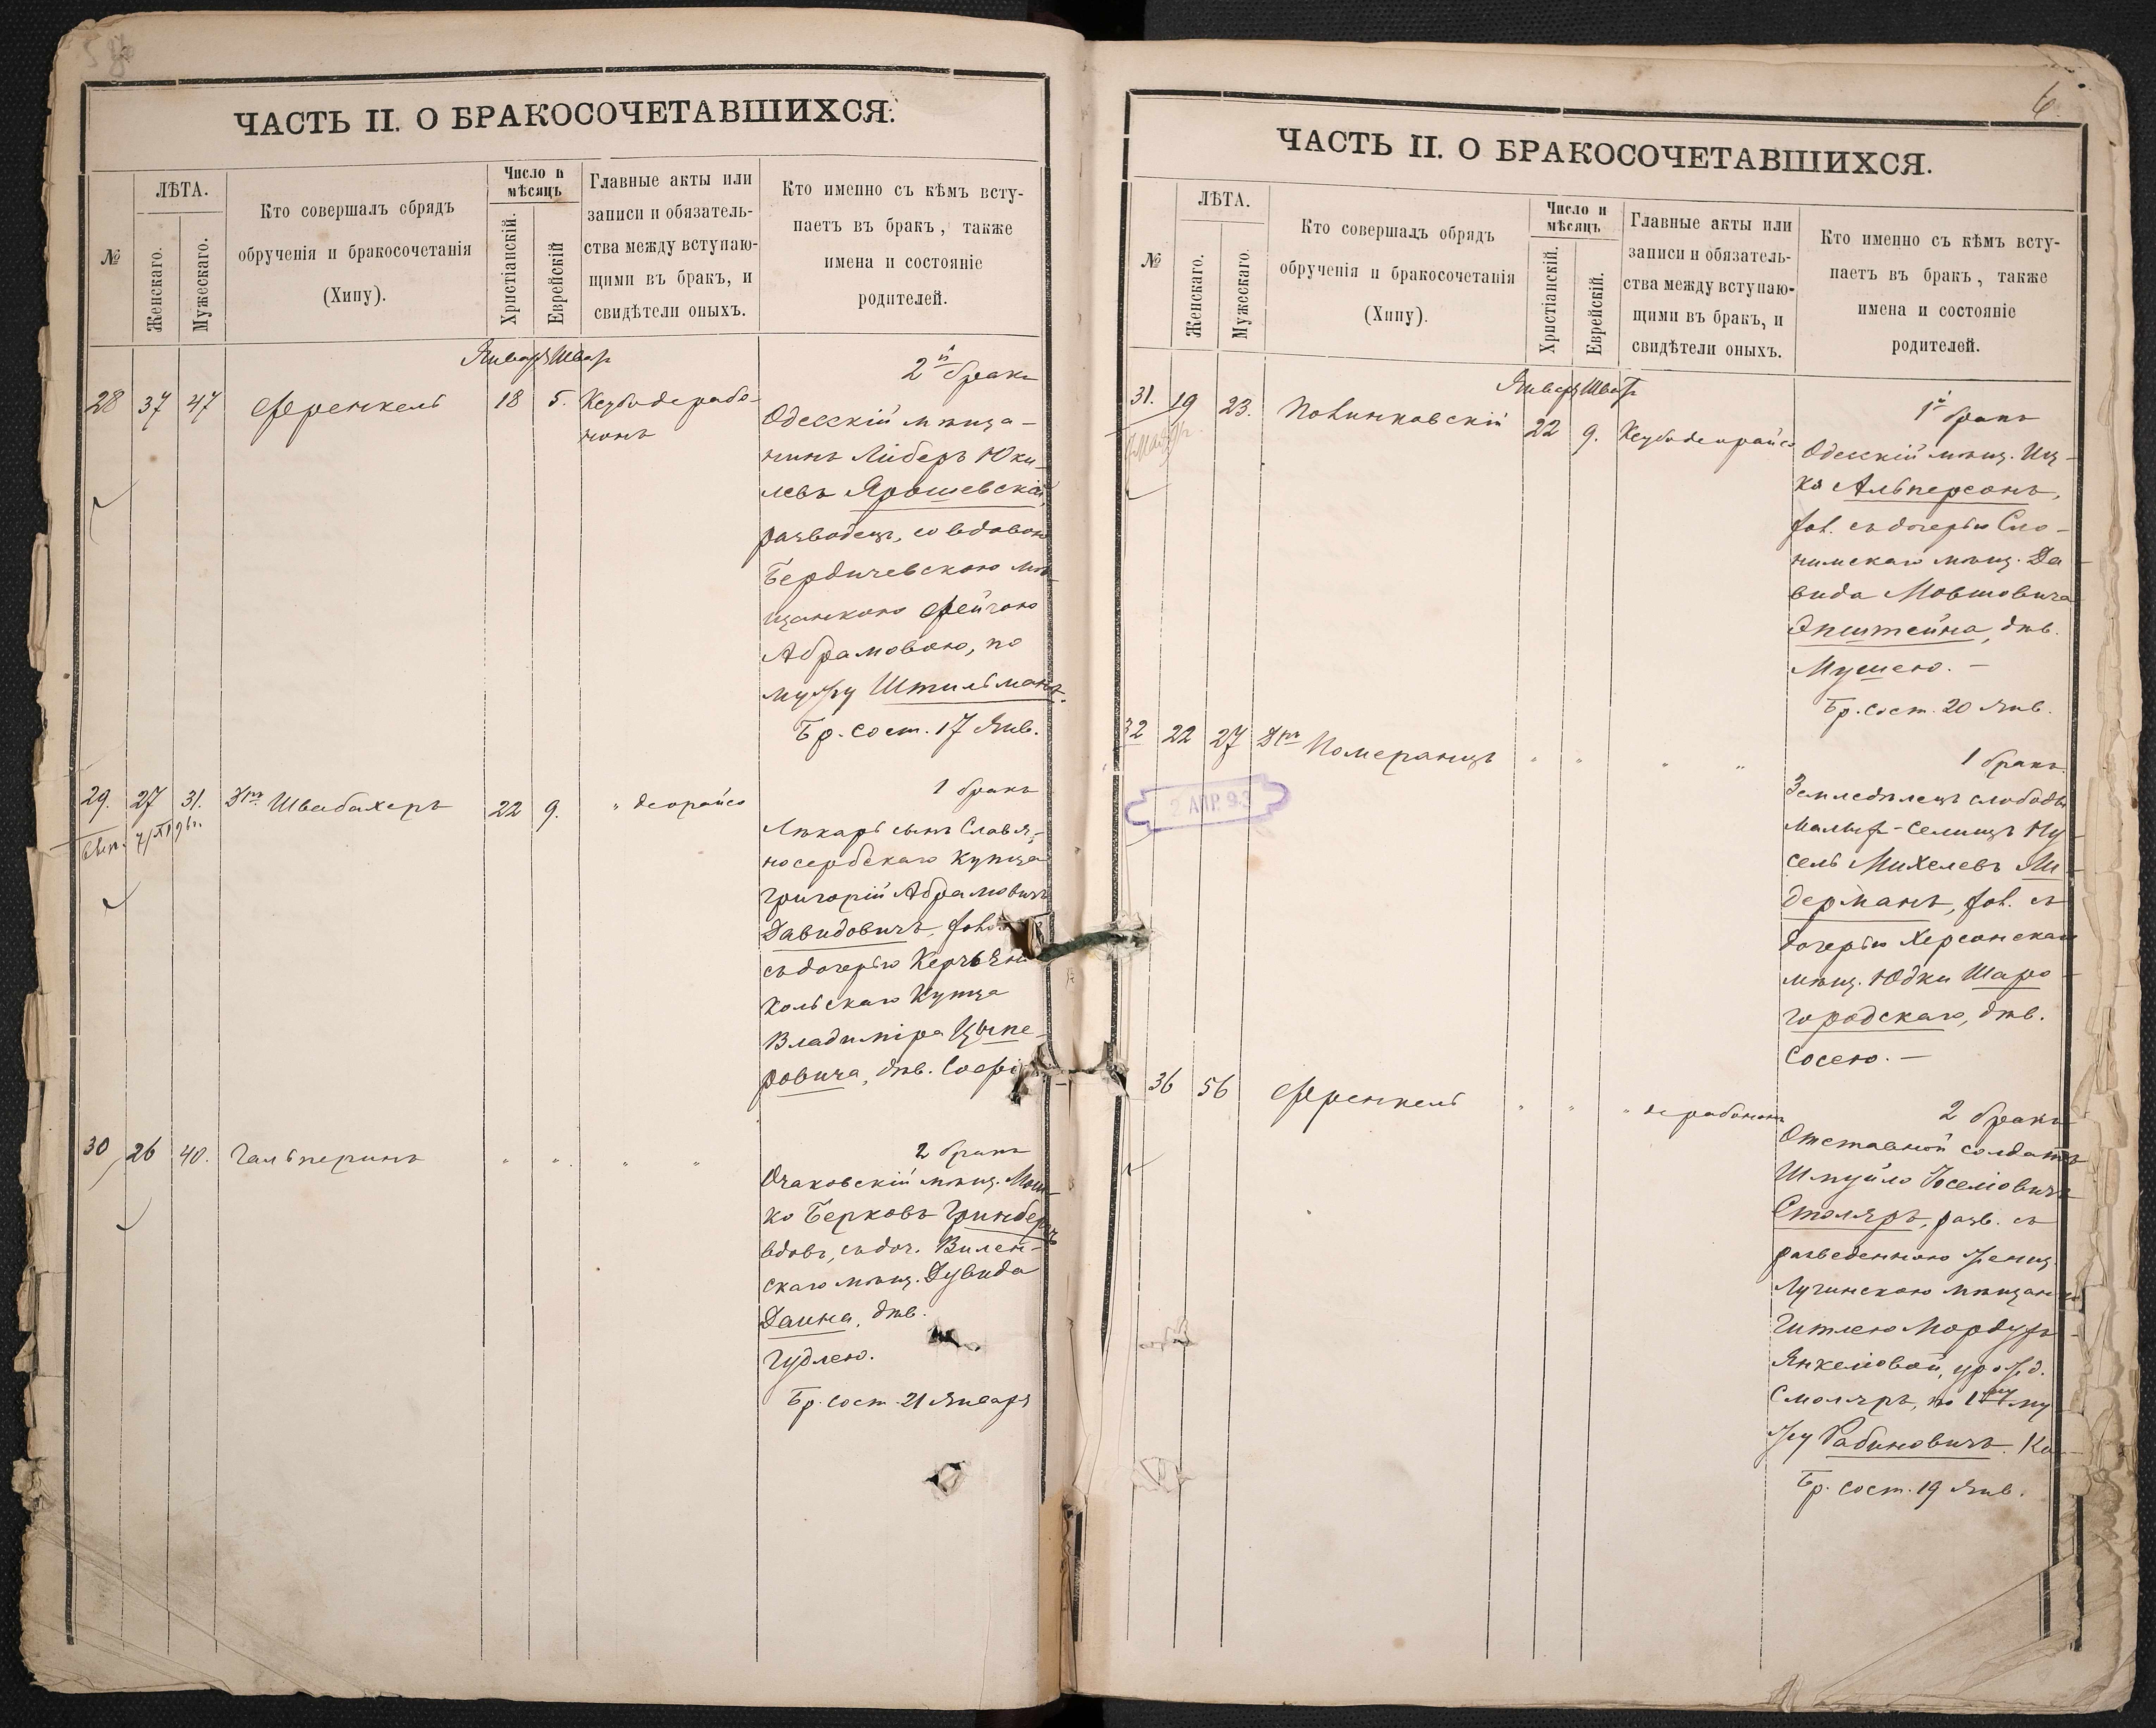 ЧАСТЬ II. О БРАКОСОЧЕТАВШИХСЯ.
№
ЛѢТА.
Женскаго.
Мужескаго.
Кто совершалъ обрядъ
обрученія и бракосочетанія
(Хипу).
Число и
мѣсяцъ
Христіанскій.
Еврейскій
Главные акты или
записи и обязатель-
ства между вступаю-
щими въ бракъ, и
свидѣтели оныхъ.
Кто именно съ кѣмъ всту-
паетъ въ бракъ, также
имена и состояніе
родителей.
Январь Шватъ
28 37 47 Френкель 18 5. Ксубо дерабо-
нонъ
2й бракъ
Одесскій мѣща-
нинъ Либеръ Юки-
левъ Ярошевскій,
разводецъ, со вдовою
Бердичевскою мѣ-
щанкою Фейгою
Абрамовою, по
мужу Штильманъ.
Бр. сост. 17 Янв.
29. 27 31. Дръ Швабахеръ 22 9. " деорайсо
1 бракъ
Лѣкарь сынъ Славя-
носербскаго купца
Григорій Абрамовичъ
Давидовичъ, хол.
съ дочерью Керчь-Ени
кольскаго Купца
Владиміра Ципе-
ровича, дѣв. Софі
30 26 40. Гальперинъ " " " "
2 бракъ
Очаковскій мѣщ. Мош-
ко Берковъ Гринбергъ
вдов, съ доч. Вилен-
скаго мѣщ. Дувида
Даина, дѣв.
Гудлею.
Бр. сост. 21 Января
6.
ЧАСТЬ II. О БРАКОСОЧЕТАВШИХСЯ.
№
ЛѢТА.
Женскаго.
Мужескаго.
Кто совершалъ обрядъ
обрученія и бракосочетанія
(Хипу).
Число и
мѣсяцъ
Христіанскій.
Еврейскій.
Главные акты или
записи и обязатель-
ства между вступаю-
щими въ бракъ, и
свидѣтели оныхъ.
Кто именно съ кѣмъ всту-
паетъ въ бракъ, также
имена и состояніе
родителей.
Январь Шватъ
31. 19 23. Повинковскій 22 9. Ксубо деорайсо
1й бракъ
Одесскій мѣщ. Иц-
ко Альперсонъ,
хол. съ дочерью Сло-
нимскаго мѣщ. Да-
вида Мовшовича
Эпштейна, дѣв.
Мушею. -
Бр. сост. 20 Янв.
32 22 27 Дръ Померанцъ " " " "
2 АПР. 93
1 бракъ.
Земледѣлецъ слободы
Малыя-Селищъ Ну-
сель Михелевъ Ли-
дерманъ, хол. съ
дочерью Херсонскаго
мѣщ. Юдки Шаро-
городскаго, дѣв.
Сосею. -
36 56 Френкель " " " дерабононъ
2 бракъ
Отставной солдатъ
Шмуйло Іоселіовичъ
Столяръ, разв. съ
разведенною женщ.
Лугинскою мѣщанкою
Гитлею Мордухъ-
Янкеліовой, урожд.
Смоляръ, по 1му му-
жу Рабиновичъ.
Бр. сост. 19 Янв.